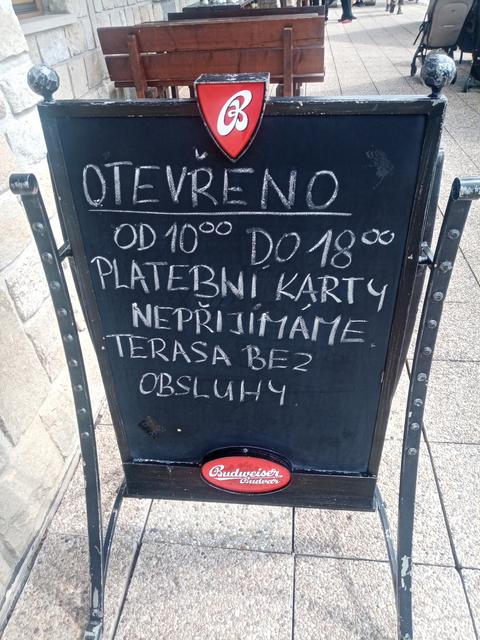 B
OTEVŘENO
OD 10⁰⁰ DO 18⁰⁰
PLATEBNÍ KARTY
NEPŘIJÍMÁME
TERASA BEZ
OBSLUHY
Budweiser
Budvar